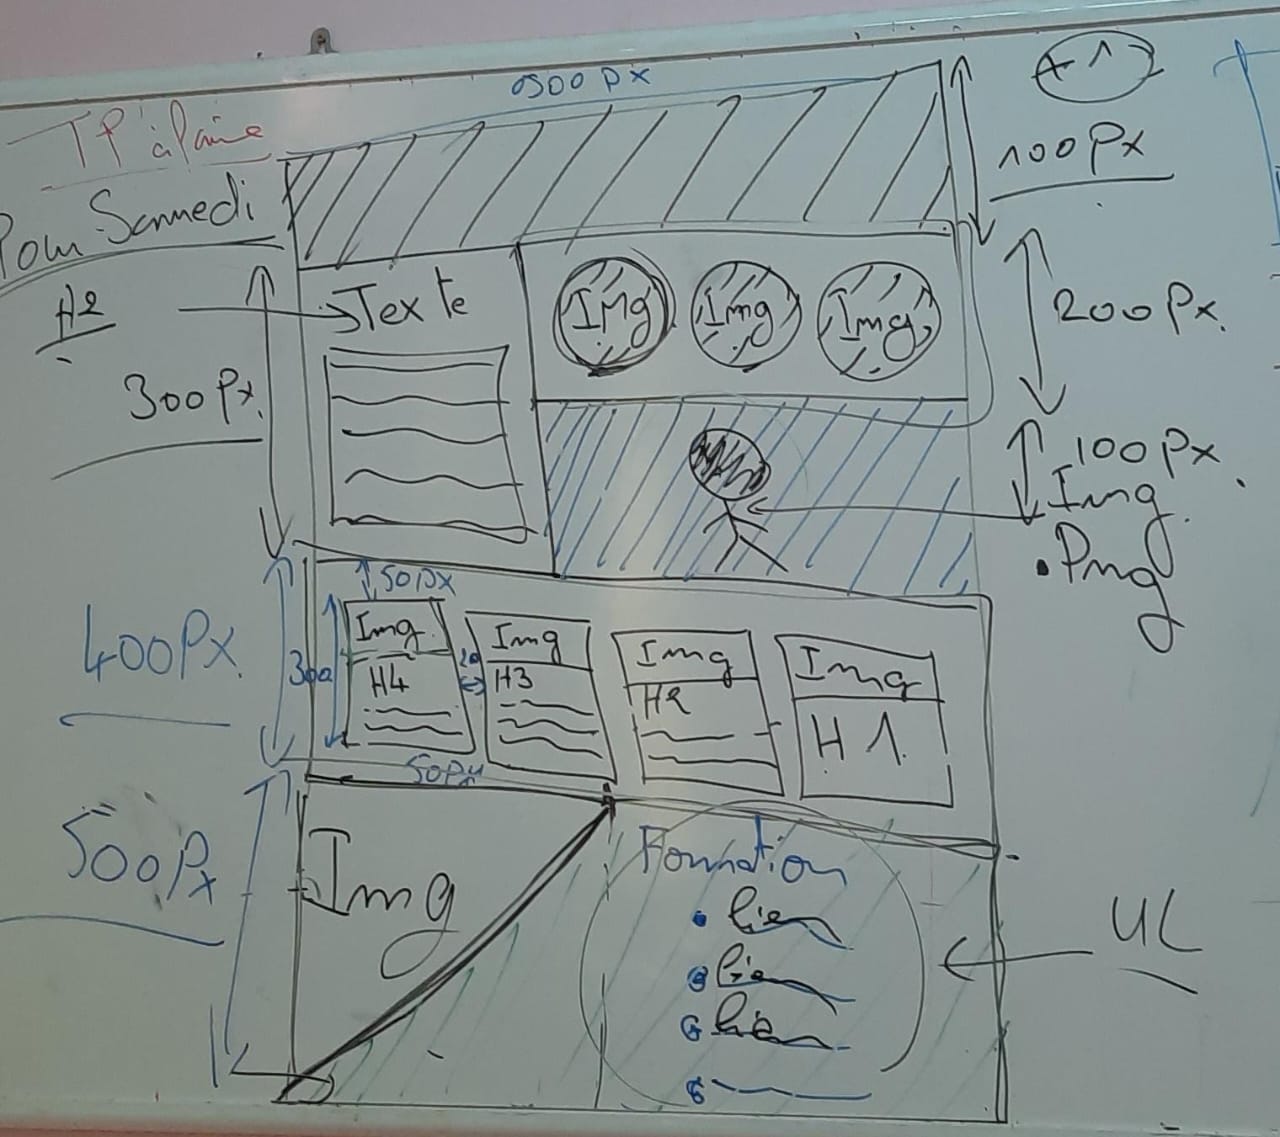 TP à faire
Pour Samedi
500 px
+1
100 Px
H2
Texte
Img
Img
Img
200 Px.
300 Px.
100 Px
Img
.Png
400 Px.
50 px
300
Img
H4
20
Img
H3
Img
H2
Img
H1.
50 px
500 Px
Img
Formation
• lien
• lien
• lien
UL